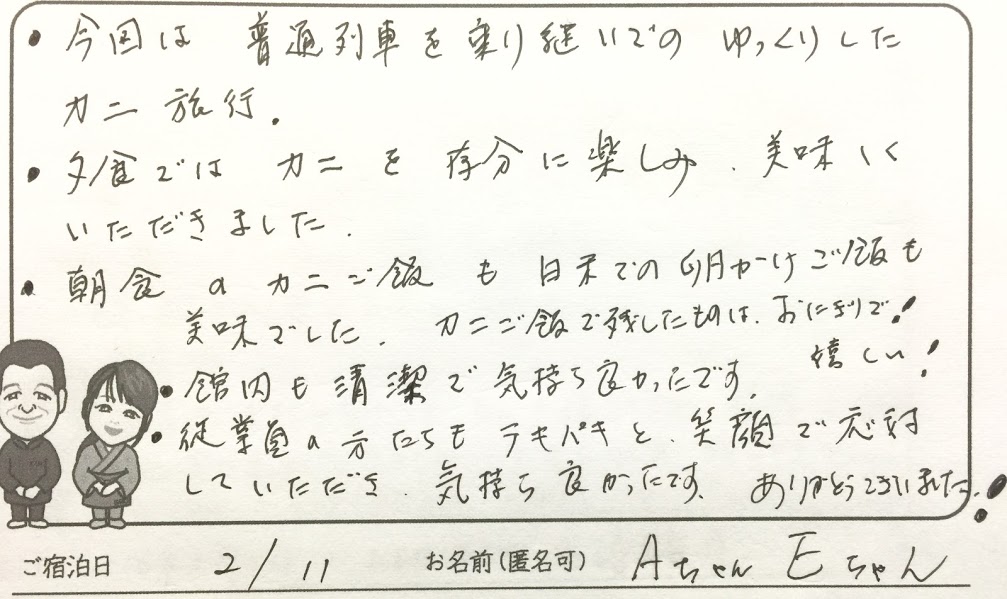 ・今回は 普通列車を乗り継いでの ゆっくりした
カニ 旅行.
・夕食では カニを 存分に楽しみ、美味しく
いただきました.
・朝食のカニご飯も 日本での卵かけご飯も
美味でした. カニご飯で残したものは、おにぎりで!
嬉しい!
・館内も清潔で気持ち良かったです.
・従業員の方たちもテキパキと、笑顔で応対
していただき、気持ち良かったです. ありがとうございました!
ご宿泊日 2/11 お名前(匿名可) Aちゃん Eちゃん